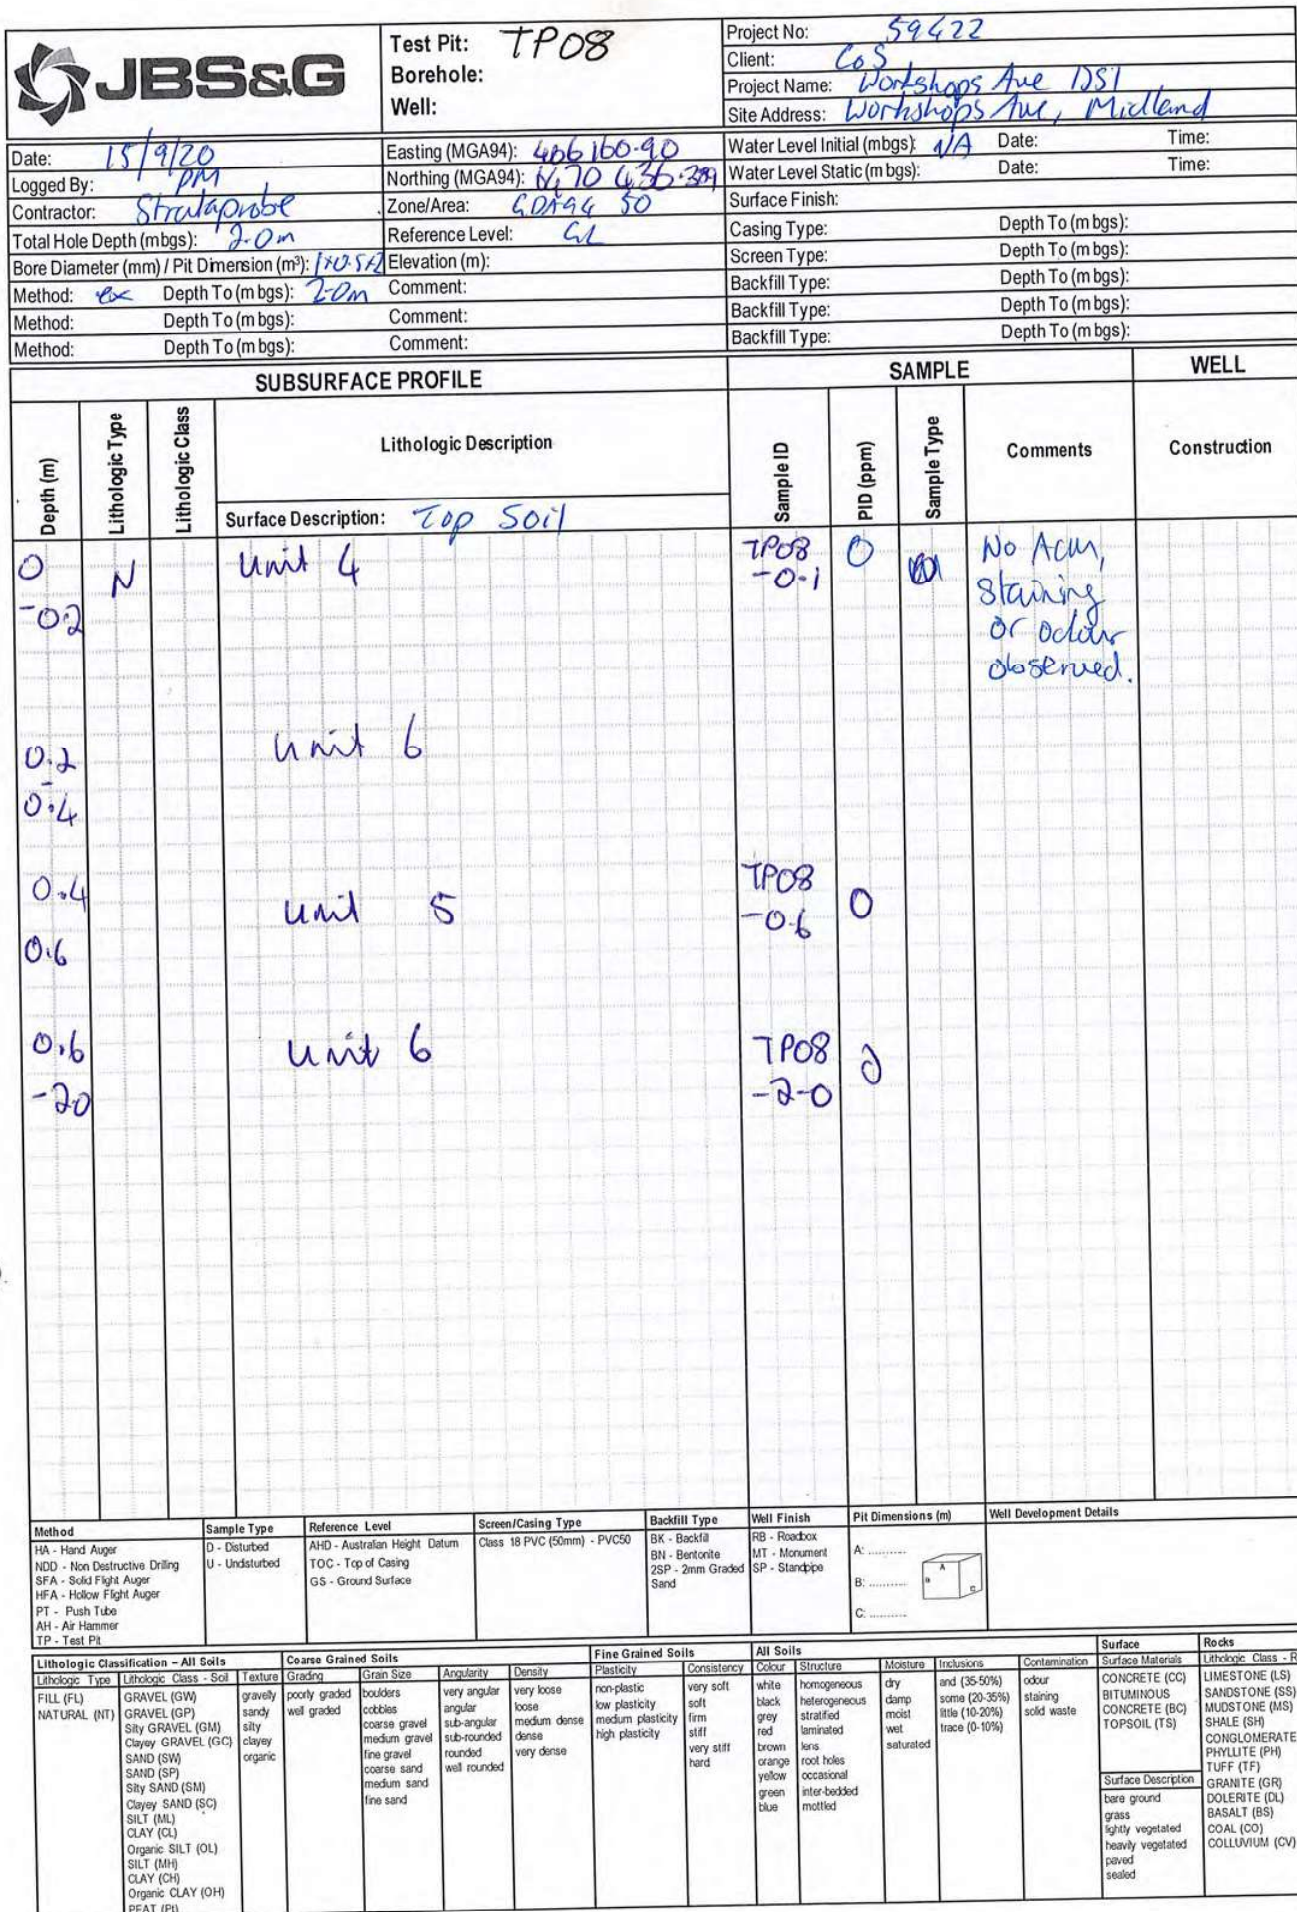 JBS&G
Test Pit: TP08
Borehole:
Well:
Project No: 59422
Client: CoS
Project Name: Workshops Ave DSI
Site Address: Workshops Ave, Midland
Date: 15/9/20
Logged By: PM
Contractor: Strataprobe
Total Hole Depth (mbgs): 2.0m
Bore Diameter (mm) / Pit Dimension (m³): 1x0.5x2
Method: ex Depth To (m bgs): 2.0m Comment:
Method: Depth To (m bgs): Comment:
Method: Depth To (m bgs): Comment:
Easting (MGA94): 406160.90
Northing (MGA94):
Zone/Area: GDA94 50
Reference Level: GL
Elevation (m):
Water Level Initial (mbgs): N/A Date: Time:
Water Level Static (m bgs): Date: Time:
Surface Finish:
Casing Type: Depth To (m bgs):
Screen Type: Depth To (m bgs):
Backfill Type: Depth To (m bgs):
Backfill Type: Depth To (m bgs):
Backfill Type: Depth To (m bgs):
SUBSURFACE PROFILE SAMPLE WELL
Depth (m) Lithologic Type Lithologic Class Lithologic Description Sample ID PID (ppm) Sample Type Comments Construction
Surface Description: Top Soil
0 N Unit 4 TP08 0 No ACM,
-0.2 -0.1 staining
or odour
observed.
0.2 Unit 6
-
0.4
0.4 Unit 5 TP08 0
0.6 -0.6
0.6 Unit 6 TP08 0
-2.0 -2-0
Method
HA - Hand Auger
NDD - Non Destructive Drilling
SFA - Solid Flight Auger
HFA - Hollow Flight Auger
PT - Push Tube
AH - Air Hammer
TP - Test Pit
Sample Type
D - Disturbed
U - Undisturbed
Reference Level
AHD - Australian Height Datum
TOC - Top of Casing
GS - Ground Surface
Screen/Casing Type
Class 18 PVC (50mm) - PVC50
Backfill Type
BK - Backfill
BN - Bentonite
2SP - 2mm Graded
Sand
Well Finish
RB - Roadbox
MT - Monument
SP - Standpipe
Pit Dimensions (m)
A: ..........
B: ..........
C: ..........
A
B
C
Well Development Details
Lithologic Classification – All Soils
Lithologic Type
FILL (FL)
NATURAL (NT)
Lithologic Class - Soil
GRAVEL (GW)
GRAVEL (GP)
Silty GRAVEL (GM)
Clayey GRAVEL (GC)
SAND (SW)
SAND (SP)
Silty SAND (SM)
Clayey SAND (SC)
SILT (ML)
CLAY (CL)
Organic SILT (OL)
SILT (MH)
CLAY (CH)
Organic CLAY (OH)
PEAT (Pt)
Texture
gravelly
sandy
silty
clayey
organic
Coarse Grained Soils
Grading
poorly graded
well graded
Grain Size
boulders
cobbles
coarse gravel
medium gravel
fine gravel
coarse sand
medium sand
fine sand
Angularity
very angular
angular
sub-angular
sub-rounded
rounded
well rounded
Density
very loose
loose
medium dense
dense
very dense
Fine Grained Soils
Plasticity
non-plastic
low plasticity
medium plasticity
high plasticity
Consistency
very soft
soft
firm
stiff
very stiff
hard
All Soils
Colour
white
black
grey
red
brown
orange
yellow
green
blue
Structure
homogeneous
heterogeneous
stratified
laminated
lens
root holes
occasional
inter-bedded
mottled
Moisture
dry
damp
moist
wet
saturated
Inclusions
and (35-50%)
some (20-35%)
little (10-20%)
trace (0-10%)
Contamination
odour
staining
solid waste
Surface
Surface Materials
CONCRETE (CC)
BITUMINOUS
CONCRETE (BC)
TOPSOIL (TS)
Surface Description
bare ground
grass
lightly vegetated
heavily vegetated
paved
sealed
Rocks
Lithologic Class - R
LIMESTONE (LS)
SANDSTONE (SS)
MUDSTONE (MS)
SHALE (SH)
CONGLOMERATE
PHYLLITE (PH)
TUFF (TF)
GRANITE (GR)
DOLERITE (DL)
BASALT (BS)
COAL (CO)
COLLUVIUM (CV)